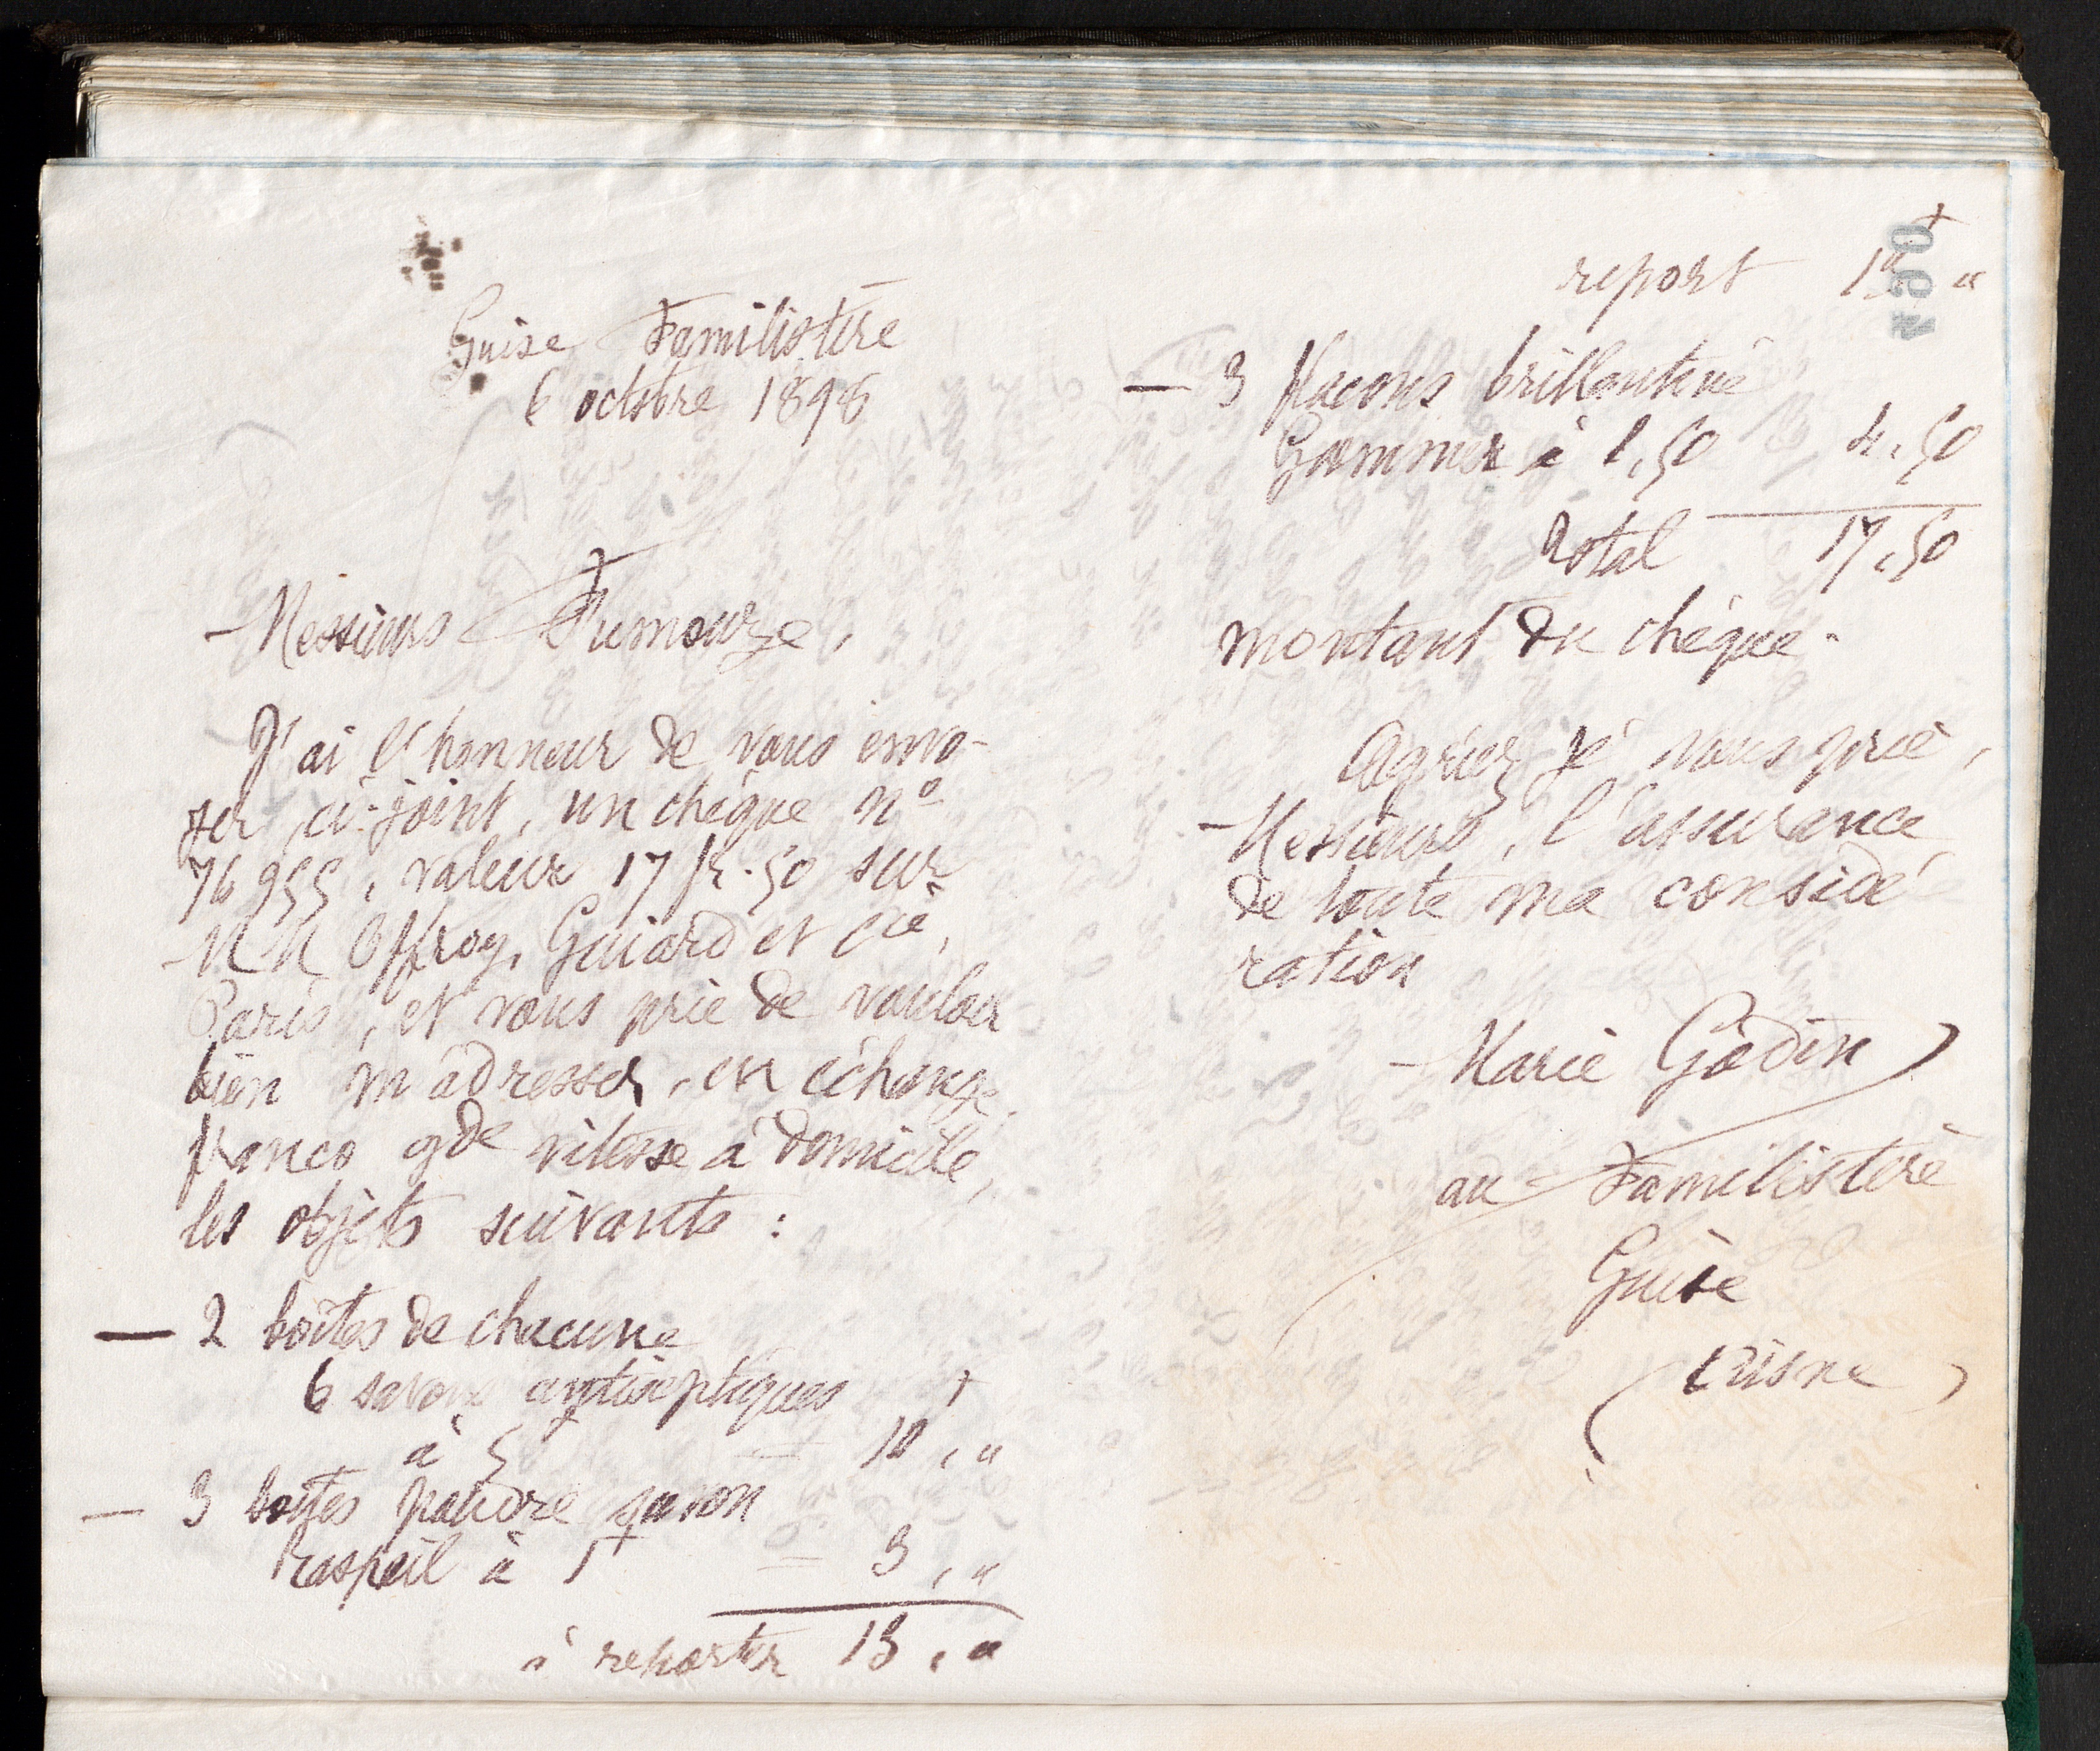 Guise Familistère
6 octobre 1898
Messieurs Fumouze,
J'ai l'honneur de vous envo-
yer, ci-joint, un chèque n°
76955, valeur 17 fr. 50 sur
MM Offroy, Guiard et Cie,
Paris, et vous prie de vouloir
bien m'adresser, en échange,
franco gde vitesse à domicile,
les objets suivants :
— 2 boîtes de chacune
6 savons antiseptiques
à 5 = 10, "
— 3 boîtes poudre savon
Raspail à 1f = 3, "
à reporter 13, "
report "
— 3 flacons brillantine
à 1,50 4,50
Total 17,50
montant du chèque.
Agréez je vous prie,
Messieurs, l'assurance
de toute ma considé
ration
Marie Godin
au Familistère
Guise
(Aisne)